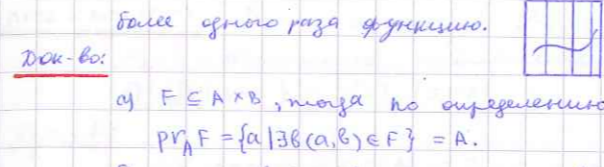 более одного раза функцию.
Док-во:
а) F ⊆ A × B, тогда по определению
pr_A F = {a | ∃b (a, b) ∈ F} = A.